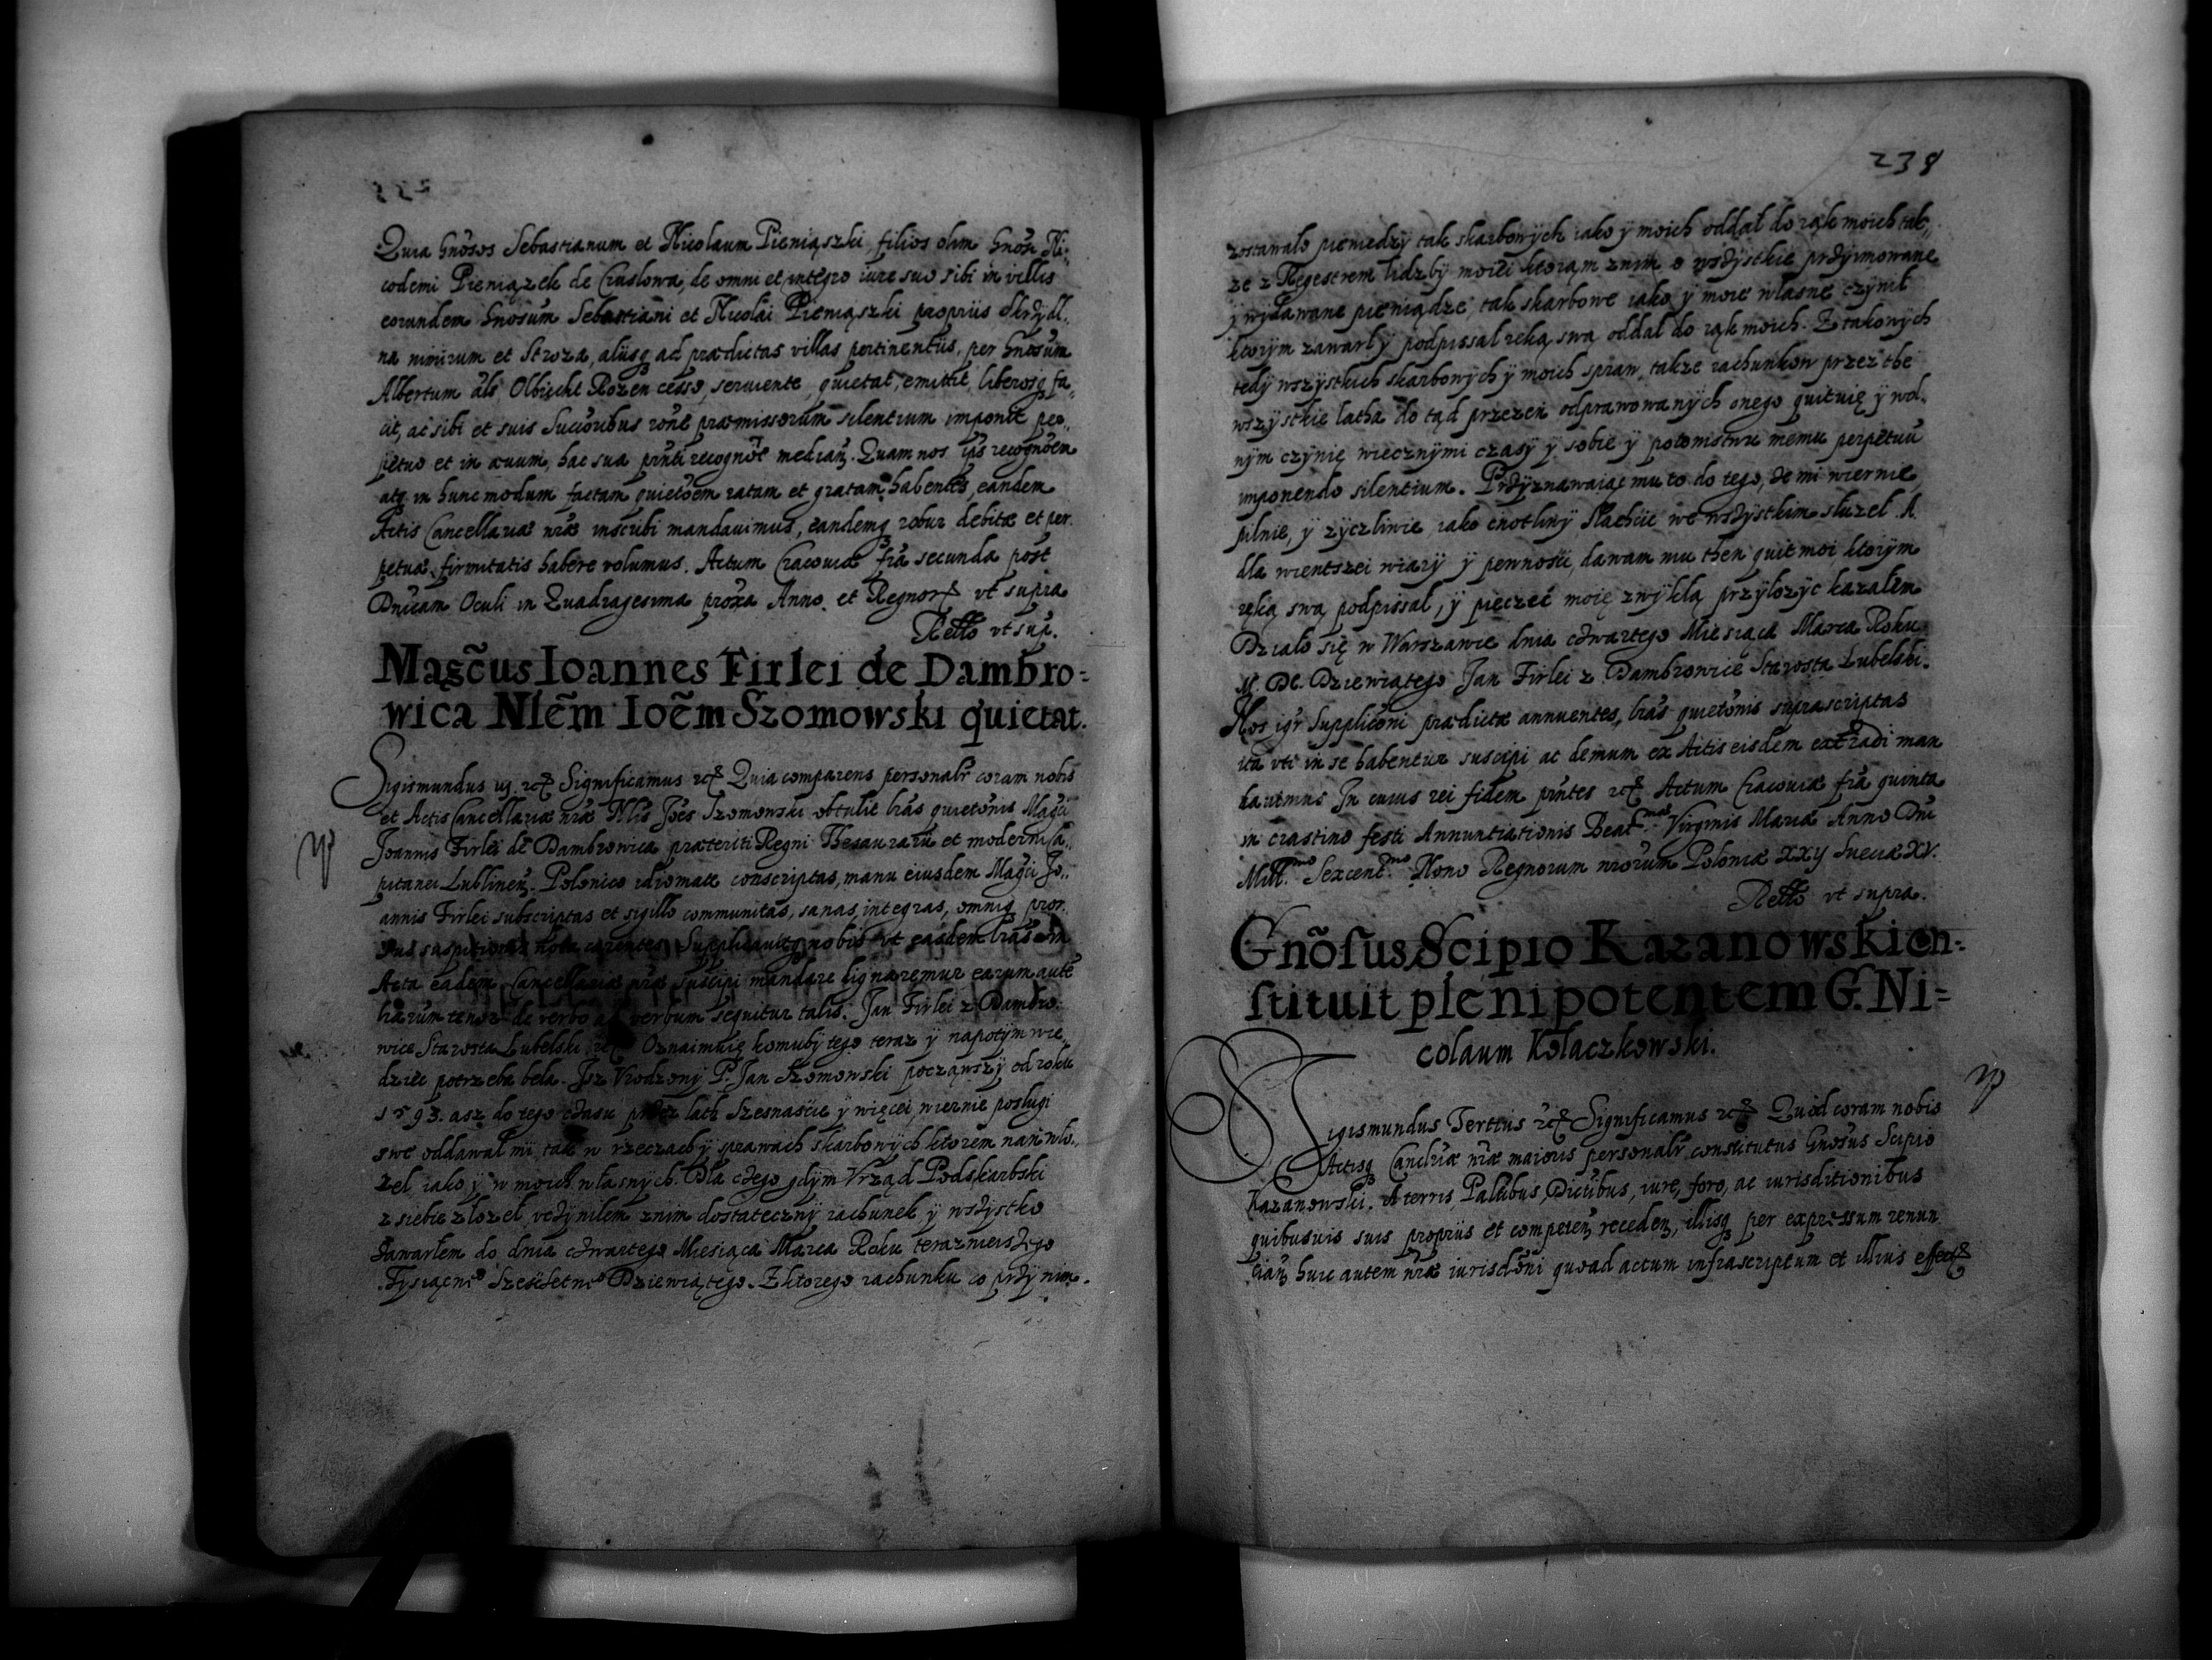 Quia Gnosos Sebastianum et Nicolaum Pieniąszki filios olim Gnosi Ni„
codemi Pieniązek de Cruslowa, de omni et integro iure suo sibi in villis
eorundem Gnosum Sebastiani et Nicolai Pieniąszki propriis Skrzydl„
na nimirum et Stroza, aliisq ad prædictas villas pertinentiis, per Gnosum
Albertum als Olbricht Rozen cesso, seruiente, quietat, emittit, liberosq fa„
cit, ac sibi et suis Succoribus rone præmissorum silentium imponit per„
petuo et in æuum, hac sua pnti recognoe median. Quam nos ips recognoen
atq in hunc modum factam quietoem ratam et gratam habentes, eandem
Actis Cancellariæ nræ inscribi mandauimus, eandemq robur debitæ et per„
petuæ firmitatis habere volumus. Actum Cracouiæ fra secunda post
Dnicam Oculi in Quadragesima proxa Anno et Regnor ut supra
Retto vt sup.
Magcus Ioannes Firlei de Dambro=
wica Nlem Ioem Szomowski quietat.
Sigismundus iij. etc Significamus etc Quia comparens personalr coram nobis
et Actis Cancellariæ nræ Nlis Joes Szomowski obtulit lras quietonis Magci
Joannis Firlei de Dambrowica præteriti Regni Thesaurarii et moderni Ca„
pitanei Lublinen. Polonico idiomate conscriptas, manu eiusdem Magci Jo„
annis Firlei subscriptas et sigillo communitas, sanas, integras, omniq pror„
sus suspitionis nota carentes Supplicauitq nobis vt easdem lras in
Acta eadem Cancellariæ nræ suscipi mandare dignaremur earum aute
lrarum tenor de verbo ad verbum sequitur talis. Jan Firlei z Dambro„
wice Starosta Lubelski etc Oznaimuię komuby tego teraz ÿ napotÿm wie„
dziec potrzeba bela. Jsz Vrodzonÿ P. Jan Szomowski począwszÿ od roku
1593. asz do tego czasu przez lath Szesnascie ÿ więcei, wiernie posługi
swe oddawal mi, tak w rzeczach ÿ sprawach skarbowÿch ktorem nan wło„
zel, iako ÿ w moich własnÿch. Dla czego gdÿm Vrząd Podskarbski
z siebie zlozel, vczÿnilem znim dostatecznÿ rachunek ÿ wszÿstko
zawarlem do dnia czwartego Miesiąca Marca Roku teraznieiszego
Tysiącne° Szescsetne° Dziewiątego. Z ktorego rachunku co przÿ nim
238
zostawalo pieniedzÿ tak skarbowÿch iako ÿ moich oddal do rąk moich tak„
ze z Regestrem lidzbÿ moiei ktorąm znim o wszÿstkie przÿimowane
ÿ wÿdawane pieniądze tak skarbowe iako ÿ moie własne czÿnil
ktorÿm zawarl ÿ podpissal reką swą oddal do rąk moich. Z takowÿch
tedÿ wszÿstkich skarbowÿch ÿ moich spraw, takze rachunkow przez the
wszÿstkie latha do tąd przezen odprawowanÿch onego quituię ÿ wol„
nÿm czÿnię wiecznÿmi czasÿ ÿ sobie ÿ potomstwu memu perpetuu
imponendo silentium. Przÿznawaiąc mu to do tego, ze mi wiernie,
pilnie, ÿ zÿczliwie, iako cnotliwÿ Slachcic we wszÿstkim sluzel. A
dla wientszei wiarÿ ÿ pewnosci, dawam mu then quit moi, ktorÿm
ręką swą podpissal, ÿ pięczec moię zwÿklą przÿlozÿc kazalem
Dzialo się w Warszawie dnia czwartego Miesiąca Marca Roku
M. DC. Dziewiątego Jan Firlei z Dambrowice Starosta Lubelski.
Nos igr Suppliconi prædictæ annuentes, lras quietonis suprascriptas
ita vti in se habentur suscipi ac demum ex Actis eisdem extradi man
dauimus Jn cuius rei fidem pntes etc Actum Cracouiæ fra quinta
in crastino festi Annuntiationis Beatmæ Virginis Mariæ Anno Dni
Millmo Sexcentmo Nono Regnorum nrorum Poloniæ XXIJ Sueciæ XV.
Retto vt supra.
Gnosus Scipio Kazanowski con=
stituit plenipotentem G. Ni=
colaum Kolaczkowski.
Sigismundus Tertius etc Significamus etc Quod coram nobis
Actisq Canclriæ nræ maioris personalr constitutus Gnosus Scipio
Kazanowski. A terris, Palibus, Dictibus, iure, foro, ac iurisditionibus
quibusuis suis propriis et competen receden, illisq per expressum renun
cian huic autem nræ iurisdioni quoad actum infrascriptum et illius effect